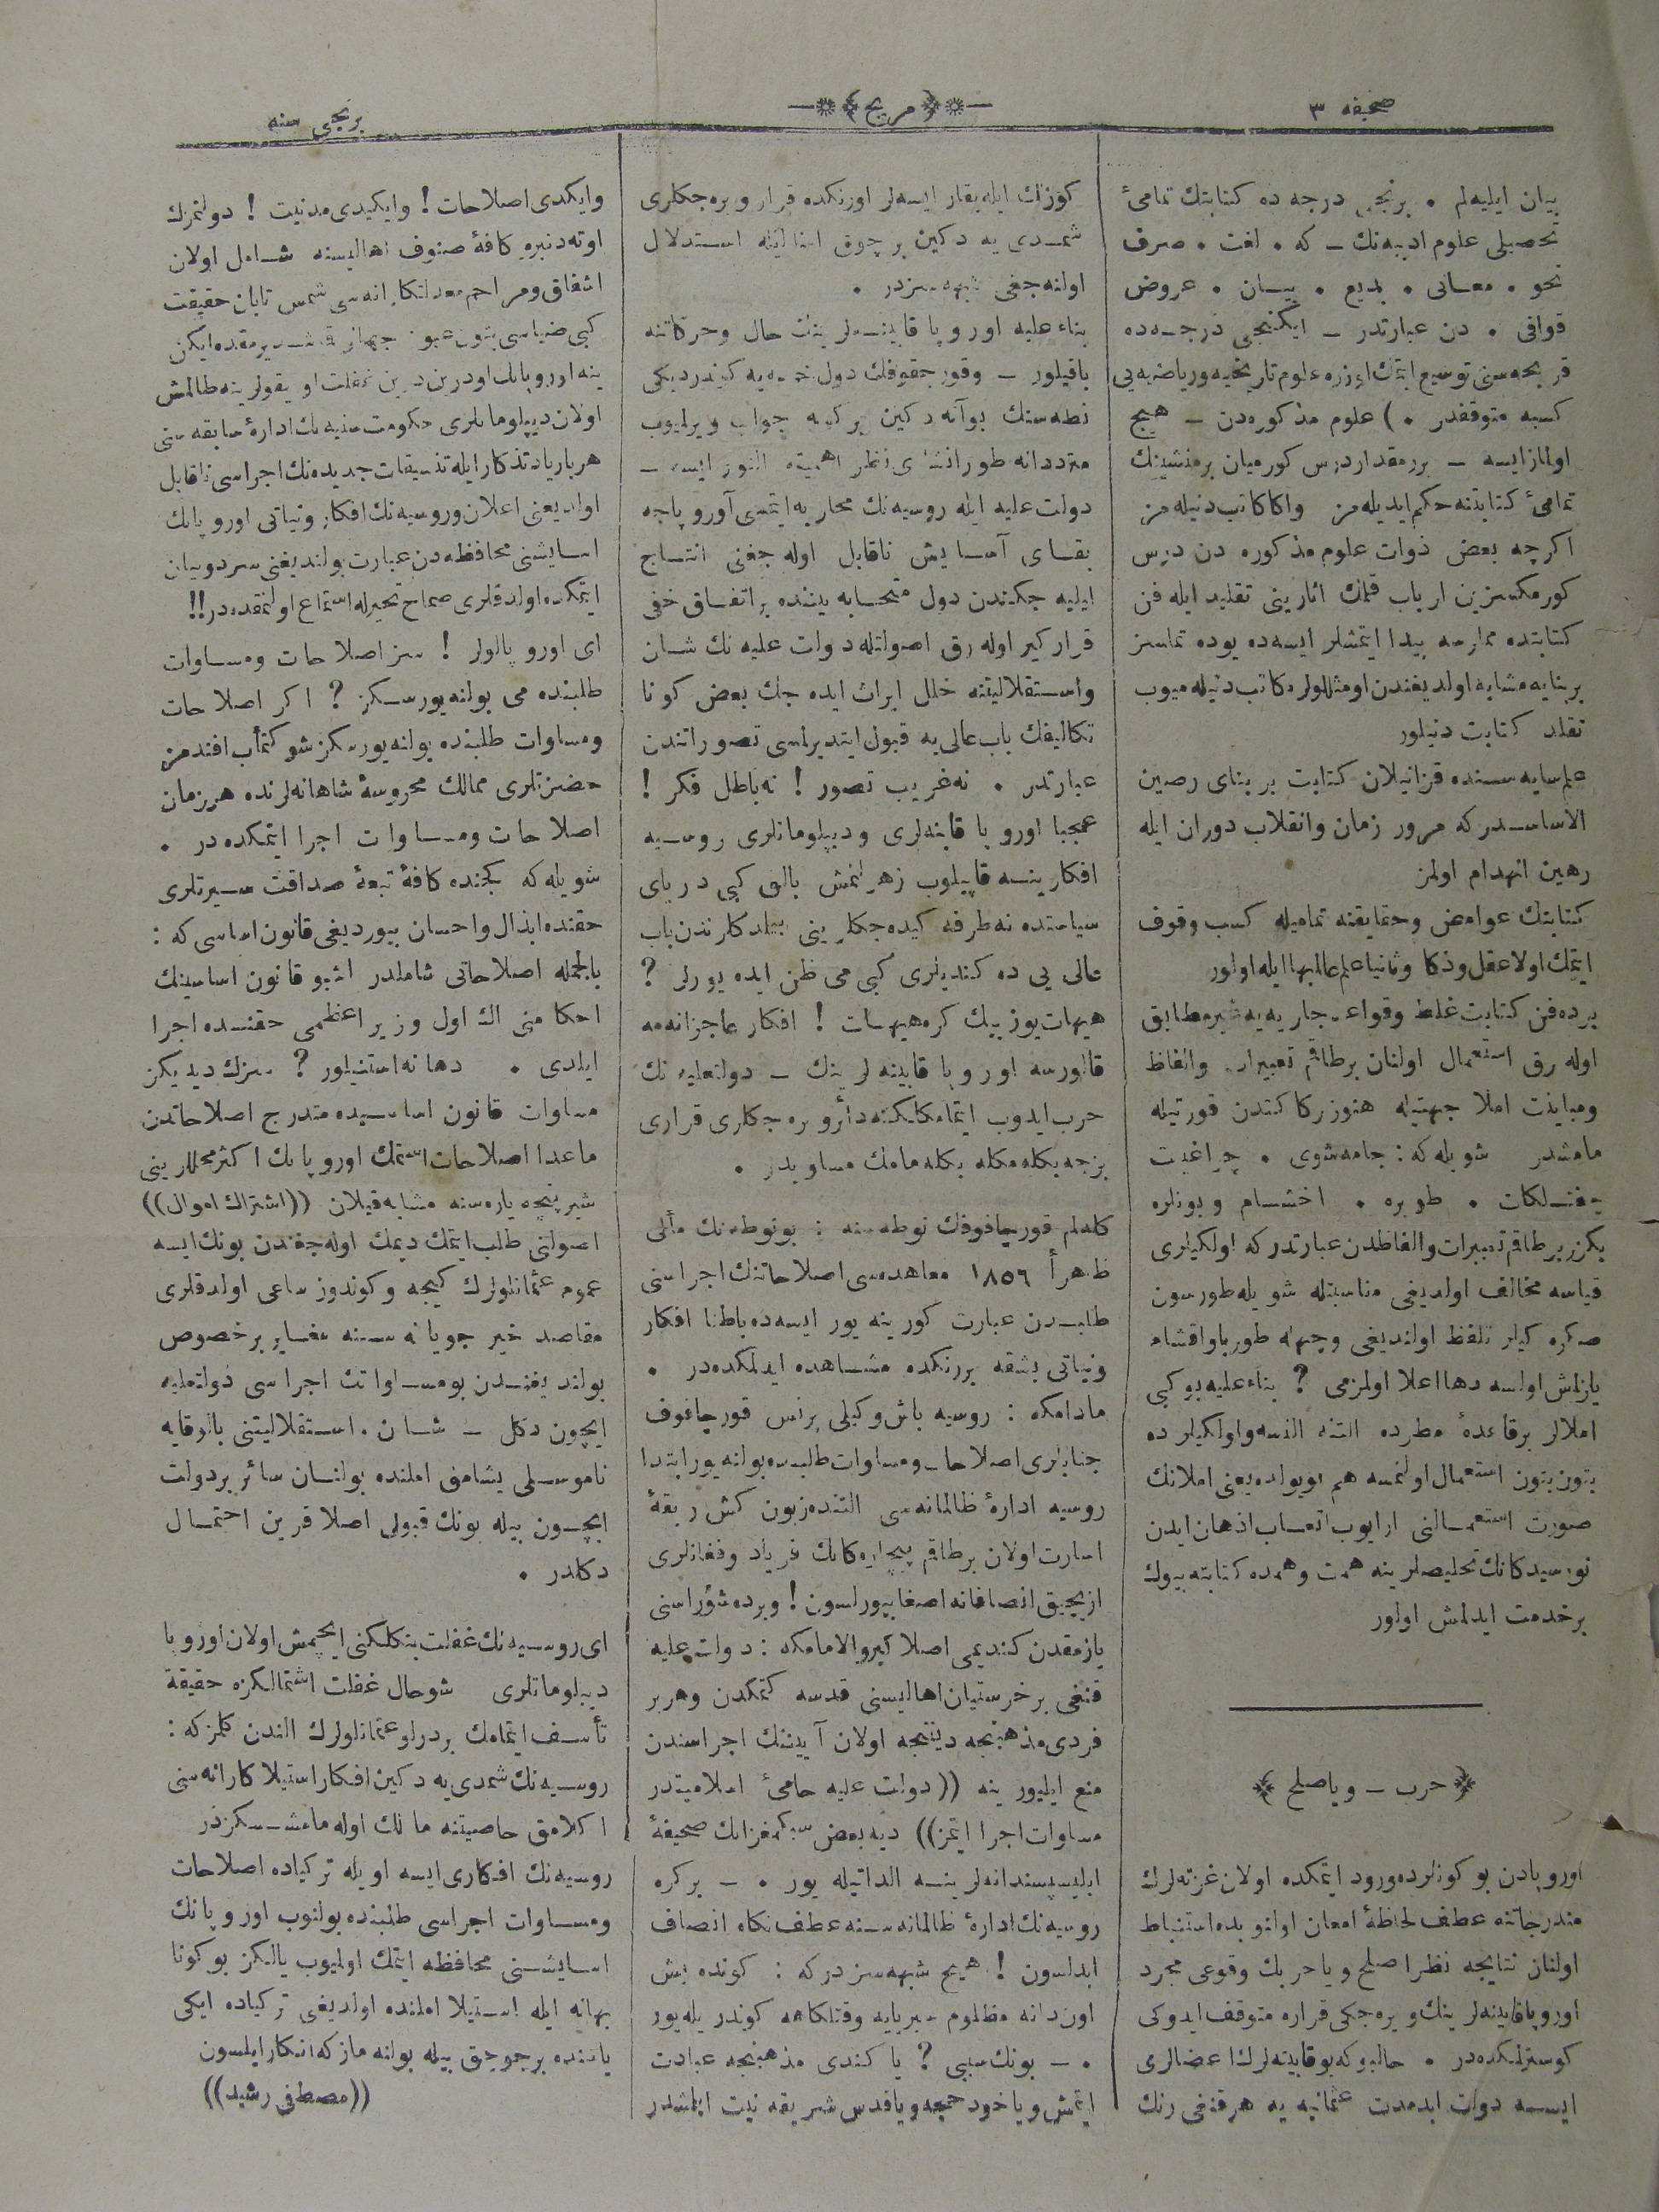 صحیفه ٣
﴿ مریخ ﴾
برنجی سنه
بیان ایلیه‌لم . برنجی درجه ده کتابتك تمامیٔ
تحصیلی علوم ادبیه‌نك ــ که . لغت . صرف
نحو . معانی . بدیع . بیان . عروض
قوافی . دن عبارتدر ــ ایکنجی درجه‌ده
قریحه‌سنی توسیع ایتمك اوزره علوم تاریخیه وریاضیه‌یی
کسبه متوقفدر . ) علوم مذکوره‌دن ــ هیچ
اولماز ایسه ــ بررمقدار درس کورمیان برمنشینك
تمامیٔ کتابتنه حکم ایدیله‌مز واکا کاتب دنیله‌مز
اکرچه بعض ذوات علوم مذکوره دن درس
کورمکسزین ارباب قلمك اثارینی تقلید ایله فن
کتابتده ممارسه پیدا ایتمشلر ایسه‌ده بوده تماسز
بربنایه مشابه اولدیغندن اومثللولره کاتب دنیله‌میوب
مقلد کتابت دنیلور
علم سایه سنده قزانیلان کتابت بر بنای رصین
الاساسدرکه مرور زمان وانقلاب دوران ایله
رهین انهدام اولمز
کتابتك غوامض وحقایقنه تمامیله کسب وقوف
ایتمك اولا عقل وذکا وثانیا علم عالیبها ایله اولور
برده فن کتابت غلط وقواعد جاریه‌یه غیرمطابق
اوله رق استعمال اولنان برطاقم تعبیرات والفاظ
ومباینت املا جهتیله هنوز رکاکتدن قورتیله
مامشدر شویله‌که : جامه‌شوی . چراغبت
چفتلکات . طوبره . اخشام وبونلره
بکزر برطاقم تعبیرات والفاظدن عبارتدرکه اولکیلری
قیاسه مخالف اولدیغی مناسبتله شویله طورسون
صکره کیلر تلفظ اولندیغی وجهله طوربا واقشام
یازلمش اولسه دها اعلا اولمزمی ؟ بناءعلیه بوکبی
املالر برقاعدۀ مطرده التنه النسه واولکیلر ده
بتون بتون استعمال اولنمسه هم بویولده یعنی املانك
صورت استعمالنی ارایوب اتعاب اذهان ایدن
نورسیدکانك تخلیصلرینه همت وهمده کتابته بیوك
برخدمت ایدلمش اولور
﴿ حرب ــ ویاصلح ﴾
اوروپادن بو کونلرده ورود ایتمکده اولان غزته‌لرك
مندرجاتنه عطف لحاظۀ امعان اولنوبده استنباط
اولنان نتایجه نظرا صلح ویا حربك وقوعی مجرد
اوروپا قابینه‌لرینك ویره‌جکی قراره متوقف ایدوکی
کوسترلمکده‌در . حالبوکه بوقابینه‌لرك اعضالری
ایسه دولت ابدمدت عثمانیه یه هرقنغی رنك
کوزلك ایله بقار ایسه‌لر اورنکده قرار ویره‌جکلری
شمدی یه دکین برچوق امثالیله استدلال
اولنه‌جغی شبهه سزدر .
بناءعلیه اوروپا قابینه‌لرینك حال وحرکاتنه
باقیلور ــ وقورچقوفك دول خمسه‌یه کوندردیکی
نطه‌سنك بوآنه دکین برکیمسه جواب ویرلمیوب
مترددانه طورانشای نظر اهمیته النور ایسه ــ
دولت علیه ایله روسیه‌نك محاربه ایتمسی آوروپاجه
بقای آسایش ناقابل اوله جغنی انتاج
ایلیه جکندن دول متحابه بیننده براتفاق خفی
قرارکیر اوله رق اصولتله دولت علیه نك شان
واستقلالیتنه خلل ایراث ایده جك بعض کونا
تکالیفك باب عالی‌یه قبول ایتدیرلمسی تصوراتندن
عبارتدر . نه‌غریب تصور ! نه‌باطل فکر !
عجبا اوروپا قابنه‌لری ودیپلوماتلری روسیه
افکارینه قاپیلوب زهرلنمش بالق کبی دریای
سیاستده نه‌طرفه کیده‌جکلرینی بیلدکلرندن باب
عالی یی ده کندیلری کبی می ظن ایده یورلر ؟
هیهات یوز بیك کره هیهات ! افکار عاجزانه‌مه
قالورسه اوروپا قابینه لرینك ــ دولتعلیه نك
حرب ایدوب ایتمامکلکنه دائر ویره جکلری قراری
بزجه بکله‌مکله بکله‌مامك مساویدر .
کله‌لم قورچاقوفك نوطه‌سنه : بونوطه‌نك مألی
ظاهراً ١٨٥٦ معاهده‌سی اصلاحاتنك اجراسنی
طلبدن عبارت کورینه یور ایسه‌ده باطنا افکار
ونیاتی بشقه بررنکده مشاهده ایدلمکده‌در .
مادامکه : روسیه باش وکیلی پرنس قورچاغوف
جنابلری اصلاحات ومساوات طلبنده بولنه یور ابتدا
روسیه ادارۀ ظالمانه‌سی التنده زبون کش ربقۀ
اسارت اولان برطاقم بیچاره‌کانك فریاد وفغانلری
ازیجق انصافانه اصغا بیورلسون ! وبرده شوراسنی
یازمقدن کندیمی اصلا کیروالامامکه : دولت علیه
قنغی برخرستیان اهالیسنی قدسه کتمکدن وهربر
فردی مذهبنجه دیننجه اولان آییننك اجراسندن
منع ایلیور ینه ((دولت علیه حامیٔ اسلامیتدر
مساوات اجرا ایتمز)) دیه بعض سبکمغزانك صحیفۀ
ابلیسپسندانه‌لرینه الداتیله یور . ــ برکره
روسیه‌نك ادارۀ ظالمانه‌سنه عطف نکاه انصاف
ایدلسون ! هیچ شبهه‌سزدرکه : کونده بش
اون دانه مظلوم سبریایه وقتلکاهه کوندریله‌یور
. ــ بونك سببی ؟ یا کندی مذهبنجه عبادت
ایتمش ویاخود حجه ویاقدس شریفه نیت ایلمشدر
وایکدی اصلاحات ! وایکیدی مدنیت ! دولتمزك
اوته‌دنبرو کافۀ صنوف اهالیسنه شامل اولان
اشفاق ومراحم معدلتکارانه‌سی شمس تابان حقیقت
کبی ضیاسی بتون عیون جهانی قمشدیرمقده ایکن
ینه اوروپانك اودرین درین غفلت اویقولرینه طالمش
اولان دیپلوماتلری حکومت سنیه نك ادارۀ سابقه سنی
هربار یاد تذکار ایله تنسیقات جدیده‌نك اجراسی ناقابل
اولدیغنی اعلان وروسیه‌نك افکار ونیاتی اوروپانك
اسایشنی محافظه‌دن عبارت بولندیغنی سرد وبیان
ایتمکده اولدقلری صماخ تحیرله استماع اولنمقده‌در!!
ای اوروپالولر ! سز اصلاحات ومساوات
طلبنده می بولنه‌یورسکز ؟ اکر اصلاحات
ومساوات طلبنده بولنه‌یورسکز شوکتمأب افندمز
حضرتلری ممالك محروسۀ شاهانه‌لرنده هرزمان
اصلاحات ومساوات اجرا ایتمکده‌در .
شویله‌که بکجنده کافۀ تبعۀ صداقت سیرتلری
حقنده ابذال واحسان بیوردیغی قانون اساسی که :
بالجمله اصلاحاتی شاملدر اشبو قانون اساسینك
احکامنی اك اول وزیر اعظمی حقنده اجرا
ایلدی . دها نه‌استنیلور ؟ سزك دیدیکز
مساوات قانون اساسیده مندرج اصلاحاتدن
ماعدا اصلاحات استمك اوروپانك اکثر محللرینی
شیر پنچه یاره‌سنه مشابه قیلان ((اشتراك اموال))
اصولنی طلب ایتمك دیمك اوله‌جغندن بونك ایسه
عموم عثمانلولرك کیجه وکوندوز ساعی اولدقلری
مقاصد خیر جویانه سنه مغایر برخصوص
بولندیغندن بومساواتك اجراسی دولتعلیه
ایچون دکل ــ شان . استقلالیتنی بالوقایه
ناموسلی یشامق املنده بولنان سائر بردولت
ایچون بیله بونك قبولی اصلا قرین احتمال
دکلدر .
ای روسیه‌نك غفلت بنکلکنی ایچمش اولان اوروپا
دیپلوماتلری شوحال غفلت اشتمالکزه حقیقة
تأسف ایتمامك بردرلو عثمانلولرك الندن کلمزکه :
روسیه‌نك شمدی‌یه دکین افکار استیلا کارانه سنی
اکلامق خاصیتنه مالك اوله مامشسکزدر
روسیه‌نك افکاری ایسه اویله ترکیاده اصلاحات
ومساوات اجراسی طلبنده بولنوب اوروپانك
اسایشنی محافظه ایتمك اولمیوب یالکز بوکونا
بهانه ایله استیلا املنده اولدیغی ترکیاده ایکی
یاشنده برجوجق بیله بولنه مازکه انکار ایلسون
((مصطفی رشید))